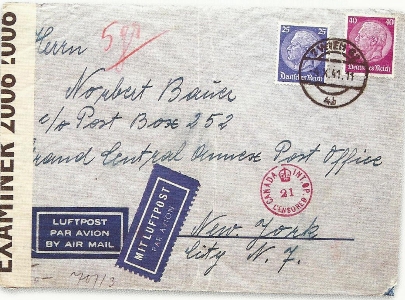 EXAMINER 2006 2006
5 gr
Herrn
Norbert Bauer
c/o Post Box 252
Grand Central Annex Post Office
New York
City N. Y.
25 25
Deutsches Reich
40 40
Deutsches Reich
BREMEN
41.11
4b
CANADA INT.OP.
21
CENSORED
LUFTPOST
PAR AVION
BY AIR MAIL
MIT LUFTPOST
PAR AVION